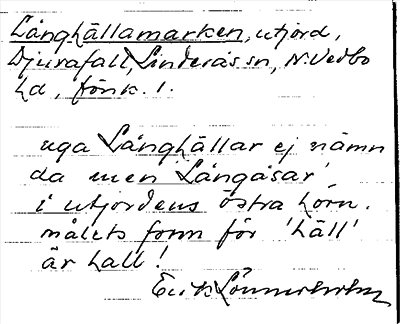 Långhällamarken, utjord,
Djurafall, Linderås sn, N. Vedbo
hd, Jönk. l.
uga Långhällar ej nämn
da men 'Långåsar'
i utjordens östra hörn.
målets form för 'häll'
är hall!
Erik